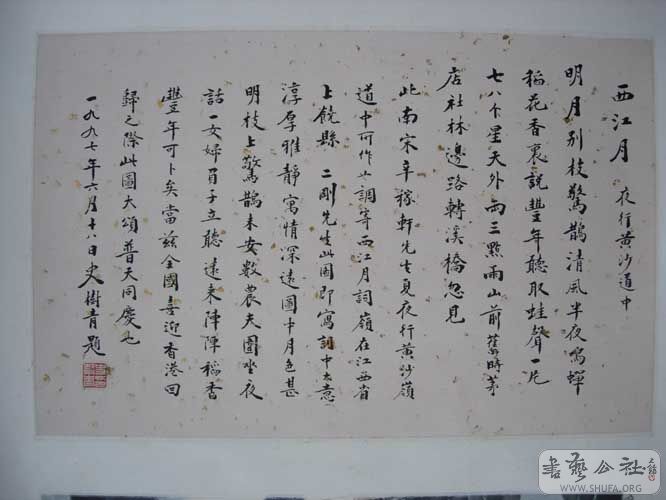 西江月 夜行黄沙道中
明月别枝驚鵲清風半夜鳴蟬
稻花香裏説豐年聽取蛙聲一片
七八个星天外兩三點雨山前舊時茅
店社林邊路轉溪橋忽見
此南宋辛稼軒先生夏夜行黄沙嶺
道中所作 調寄西江月詞嶺在江西省
上饒縣 二剛先生此图即寫詞中大意
淳厚雅靜寓情深遠圖中月色甚
明枝上驚鵲未安數農夫圍坐夜
話一女婦 子立聽遠来陣陣稻香
豐年可卜矣當兹全國喜迎香港回
歸之際此圖大頌普天同慶也
一九九七年六月十八日史樹青題
書藝公社
WWW.SHUFA.ORG